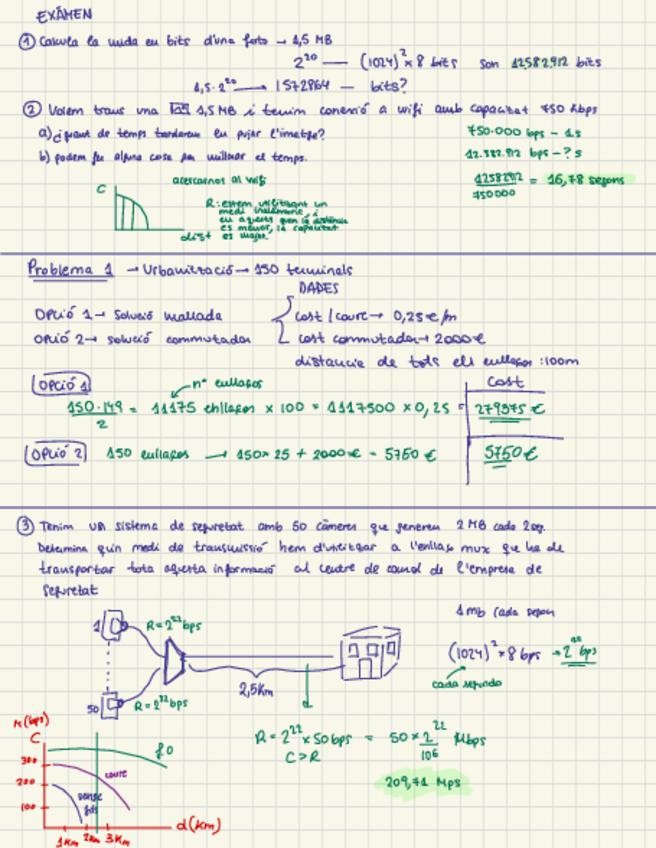 EXÀMEN
① Calcula la mida en bits d'una foto → 1,5 MB
2²⁰ — (1024)² × 8 bits són 12582912 bits
1,5 · 2²⁰ → 1572864 — bits?
② Volem trans una 1,5 MB i tenim conexió a wifi amb capacitat 750 kbps
a) ¿quant de temps tardarem en pujar l'imatge?
750.000 bps – 1s
b) podem fer alguna cosa per millorar el temps.
12.582.912 bps – ? s
12582912 / 750000 = 16,78 segons
acercarnos al wifi
C
R: estem utilitzant un
medi inalàmbric, i
en aquests quan la distància
es menor, la capacitat
es major
dist
Problema 1 → Urbanització → 150 terminals
DADES
OPCIÓ 1 → Solució mallada
cost/coure → 0,25 €/m
OPCIÓ 2 → solució commutador
cost commutador → 2000 €
distancia de tots els enllaços : 100m
OPCIÓ 1
nº enllaços
cost
150·149 / 2 = 11175 enllaços × 100 = 1117500 × 0,25 = 279375 €
OPCIÓ 2 150 enllaços → 150 × 25 + 2000 € = 5750 €
5750 €
③ Tenim un sistema de seguretat amb 50 càmeres que generen 2 MB cada 2seg.
Determina quin medi de transmissió hem d'utilitzar a l'enllaç mux que ha de
transportar tota aquesta informació al centre de control de l'empresa de
seguretat
1 mb cada segon
1
R = 2²³ bps
(1024)² × 8 bps → 2²³ bps
cada segundo
2,5 Km
50
R = 2²² bps
d
R (bps)
C
R = 2²² × 50 bps = 50 × 2²² / 10⁶ Mbps
C > R
209,71 Mps
fo
300
coure
200
sense
fils
100
1Km 2Km 3Km
d (Km)